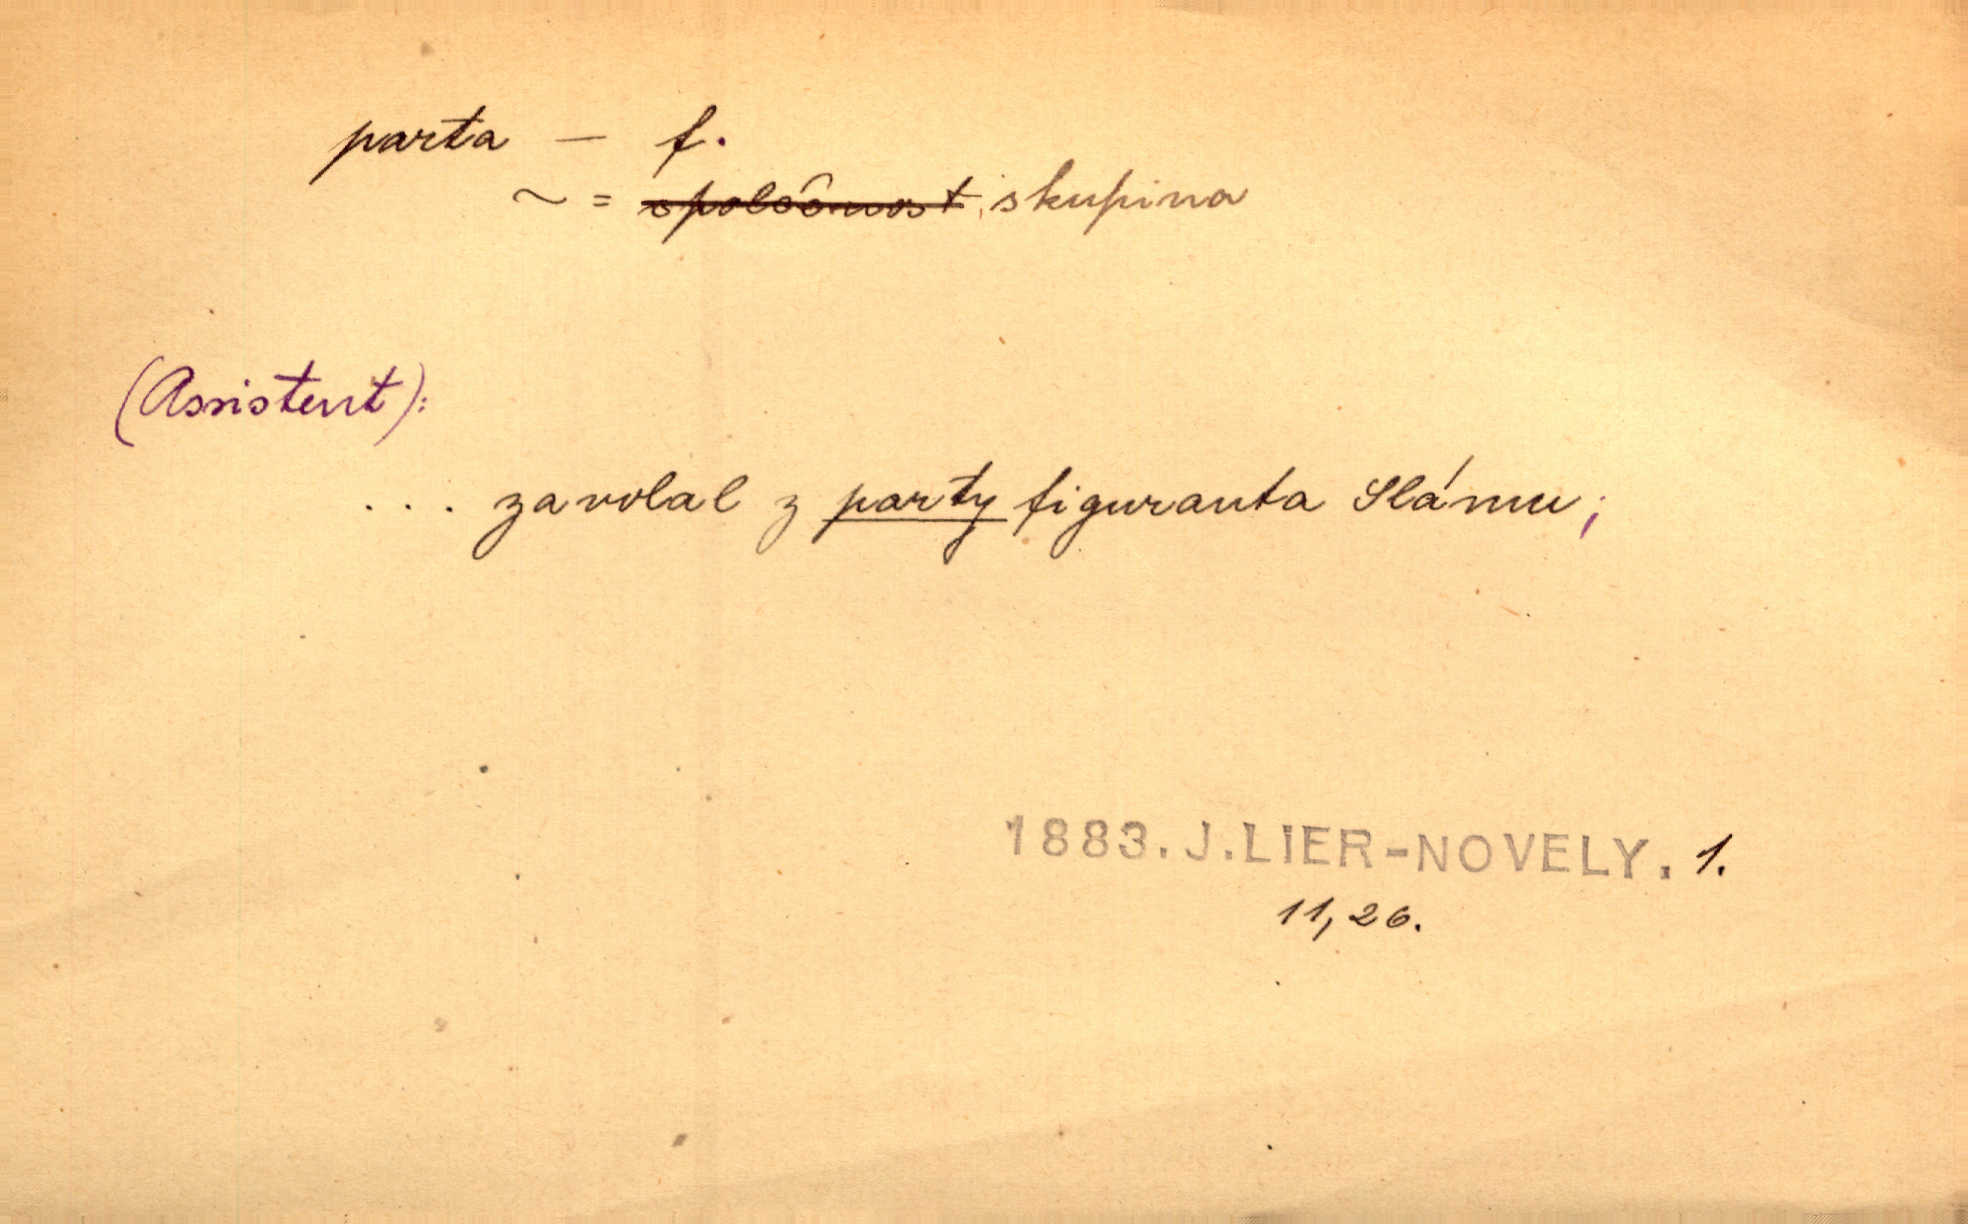 parta — f.
~ = společnost, skupina
(Assistent):
... zavolal z party figuranta Slámu;
1883. J. LIER-NOVELY. 1.
11, 26.